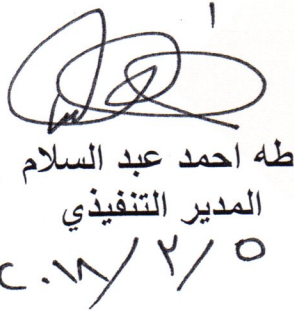 طه احمد عبد السلام
المدير التنفيذي
٢٠١٨/٢/٥